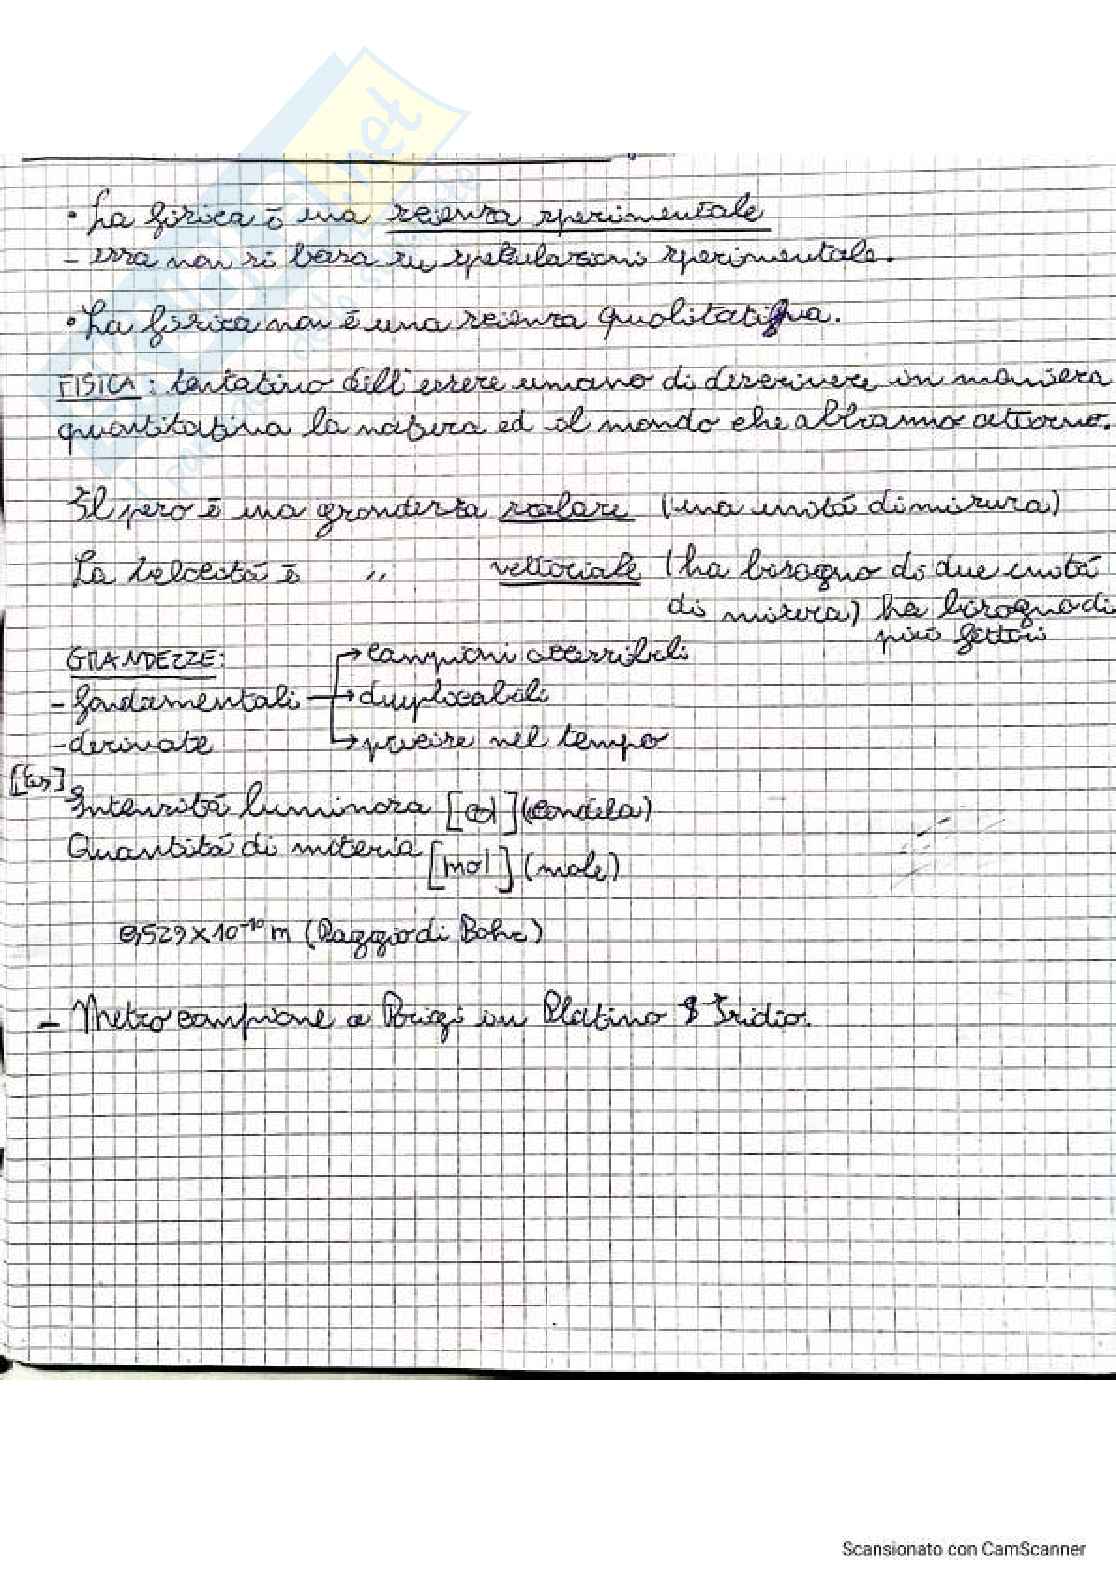 • La fisica è una scienza sperimentale
- essa non si basa su speculazioni sperimentale.
• La fisica non è una scienza qualitativa.
FISICA: tentativo dell'essere umano di descrivere in maniera
quantitativa la natura ed il mondo che abbiamo attorno.
Il peso è una grandezza scalare (una unitá di misura)
La velocitá è " vettoriale (ha bisogno di due unitá
di misura) ha bisogno di
piú fattori
GRANDEZZE:
- fondamentali → campioni accessibili
→ duplicabili
- derivate → precise nel tempo
[Es]
Intensitá luminosa [cd] (candela)
Quantitá di materia [mol] (mole)
0,529 x 10⁻¹⁰ m (Raggio di Bohr)
- Metro campione a Parigi in Platino Iridio.
.net
Scansionato con CamScanner